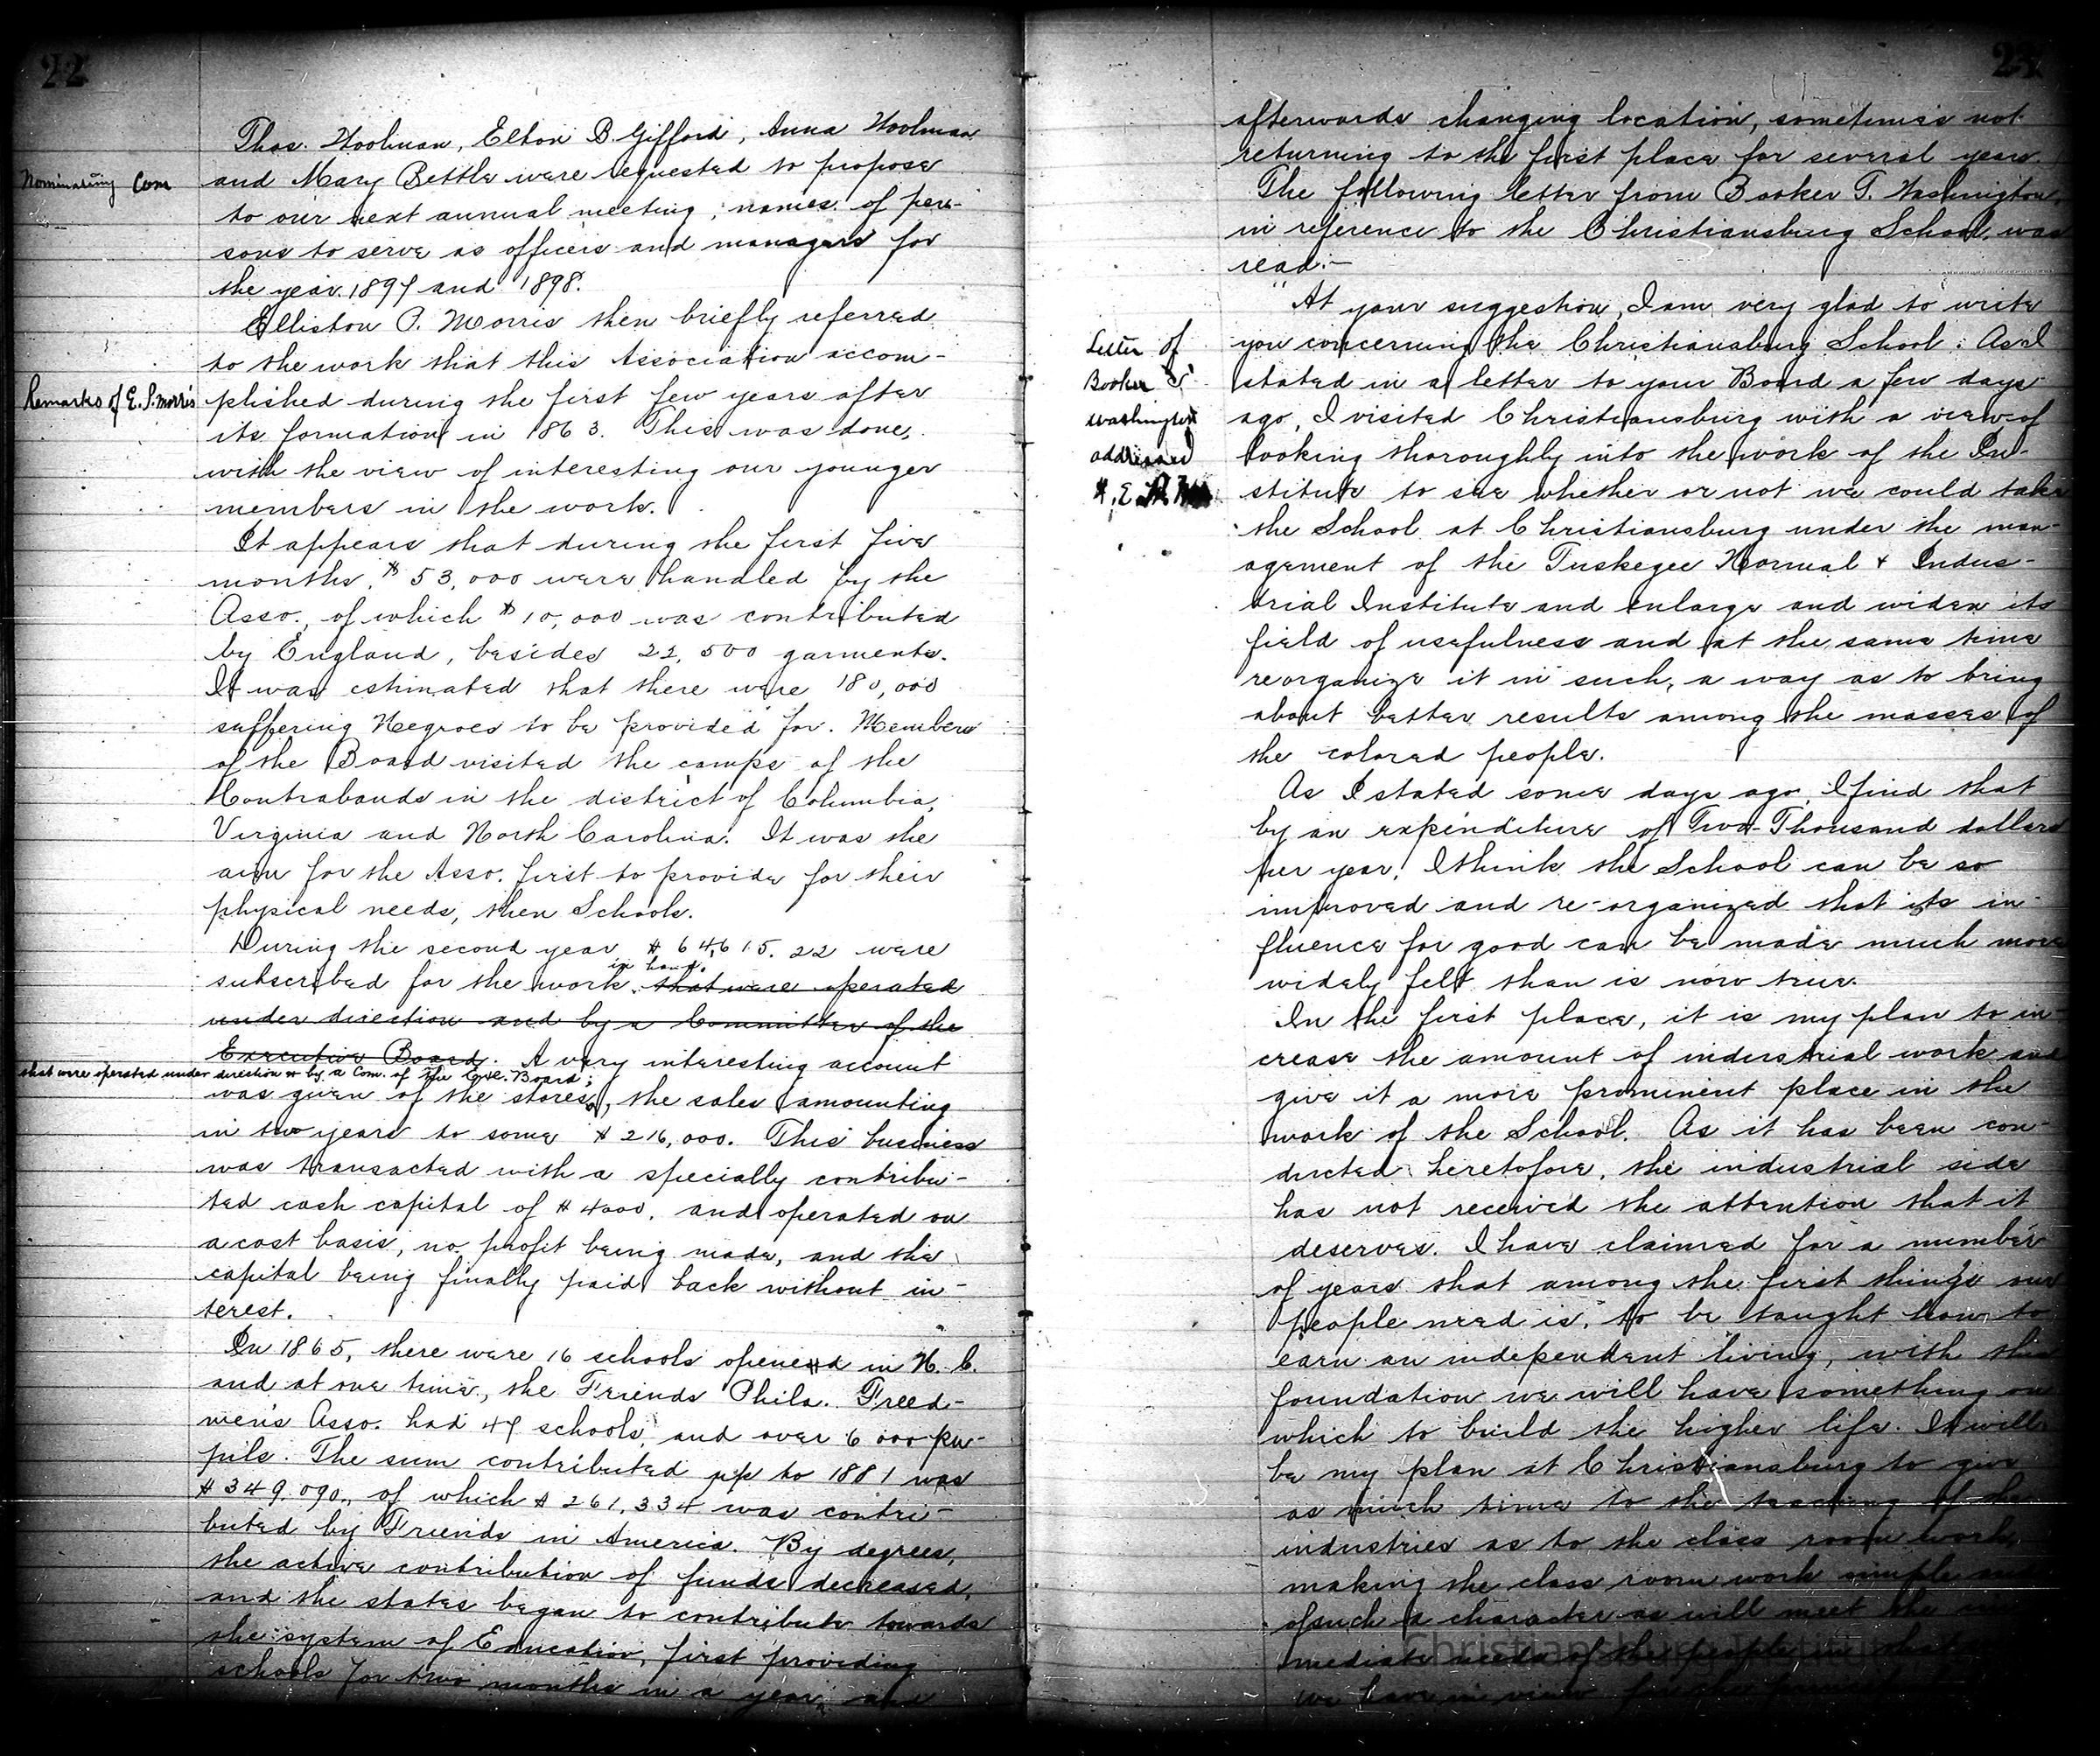 22
Thos. Woolman, Elton B. Gifford, Anna Woolman
Nominating Com
and Mary Bettle were requested to propose
to our next annual meeting, names of per-
sons to serve as officers and managers for
the year 1897 and 1898.
Elliston P. Morris then briefly referred
to the work that this Association accom-
Remarks of E. P. Morris
plished during the first few years after
its formation in 1863. This was done,
with the view of interesting our younger
members in the work.
It appears that during the first five
months, $53,000 were handled by the
Asso., of which $10,000 was contributed
by England, besides 22,500 garments.
It was estimated that there were 180,000
suffering Negroes to be provided for. Members
of the Board visited the camps of the
Contrabands in the district of Columbia,
Virginia and North Carolina. It was the
aim for the Asso. first to provide for their
physical needs, then Schools.
During the second year $64,615.22 were
in hand.
subscribed for the work. that were operated
under direction and by a Committee of the
Executive Board. A very interesting account
that were operated under direction & by a Com. of the Exe. Board;
was given of the stores, the sales amounting
in two years to some $216,000. This business
was transacted with a specially contribu-
ted cash capital of $4000, and operated on
a cost basis, no profit being made, and the
capital being finally paid back without in-
terest.
In 1865, there were 16 schools opened in N. C.
and at one time, the Friends Phila. Freed-
men's Asso. had 47 schools, and over 6000 pu-
pils. The sum contributed up to 1881 was
$349,090., of which $261,334 was contri-
buted by Friends in America. By degrees,
the active contribution of funds decreased,
and the states began to contribute towards
the system of Education, first providing
schools for two months in a year, and
afterwards changing location, sometimes not
returning to the first place for several years.
The following letter from Booker T. Washington,
in reference to the Christiansburg School, was
read:—
"At your suggestion, I am very glad to write
Letter of
Booker T
Washington
addressed
you concerning the Christiansburg School. As I
stated in a letter to your Board a few days
ago, I visited Christiansburg with a view of
looking thoroughly into the work of the In-
stitute to see whether or not we could take
the School at Christiansburg under the man-
agement of the Tuskegee Normal & Indus-
trial Institute and enlarge and widen its
field of usefulness and at the same time
reorganize it in such, a way as to bring
about better results among the masses of
the colored people.
As I stated some days ago, I find that
by an expenditure of Two-Thousand dollars
per year, I think the School can be so
improved and re-organized that its in-
fluence for good can be made much more
widely felt than is now true.
In the first place, it is my plan to in-
crease the amount of industrial work and
give it a more prominent place in the
work of the School. As it has been con-
ducted heretofore, the industrial side
has not received the attention that it
deserves. I have claimed for a number
of years that among the first things our
people need is, to be taught how to
earn an independent living, with this
foundation we will have something on
which to build the higher life. It will
be my plan at Christiansburg to give
as much time to the teaching of the
industries as to the class room work,
making the class room work simple and
of such a character as will meet the
mediate needs of the people in
we have in view for the